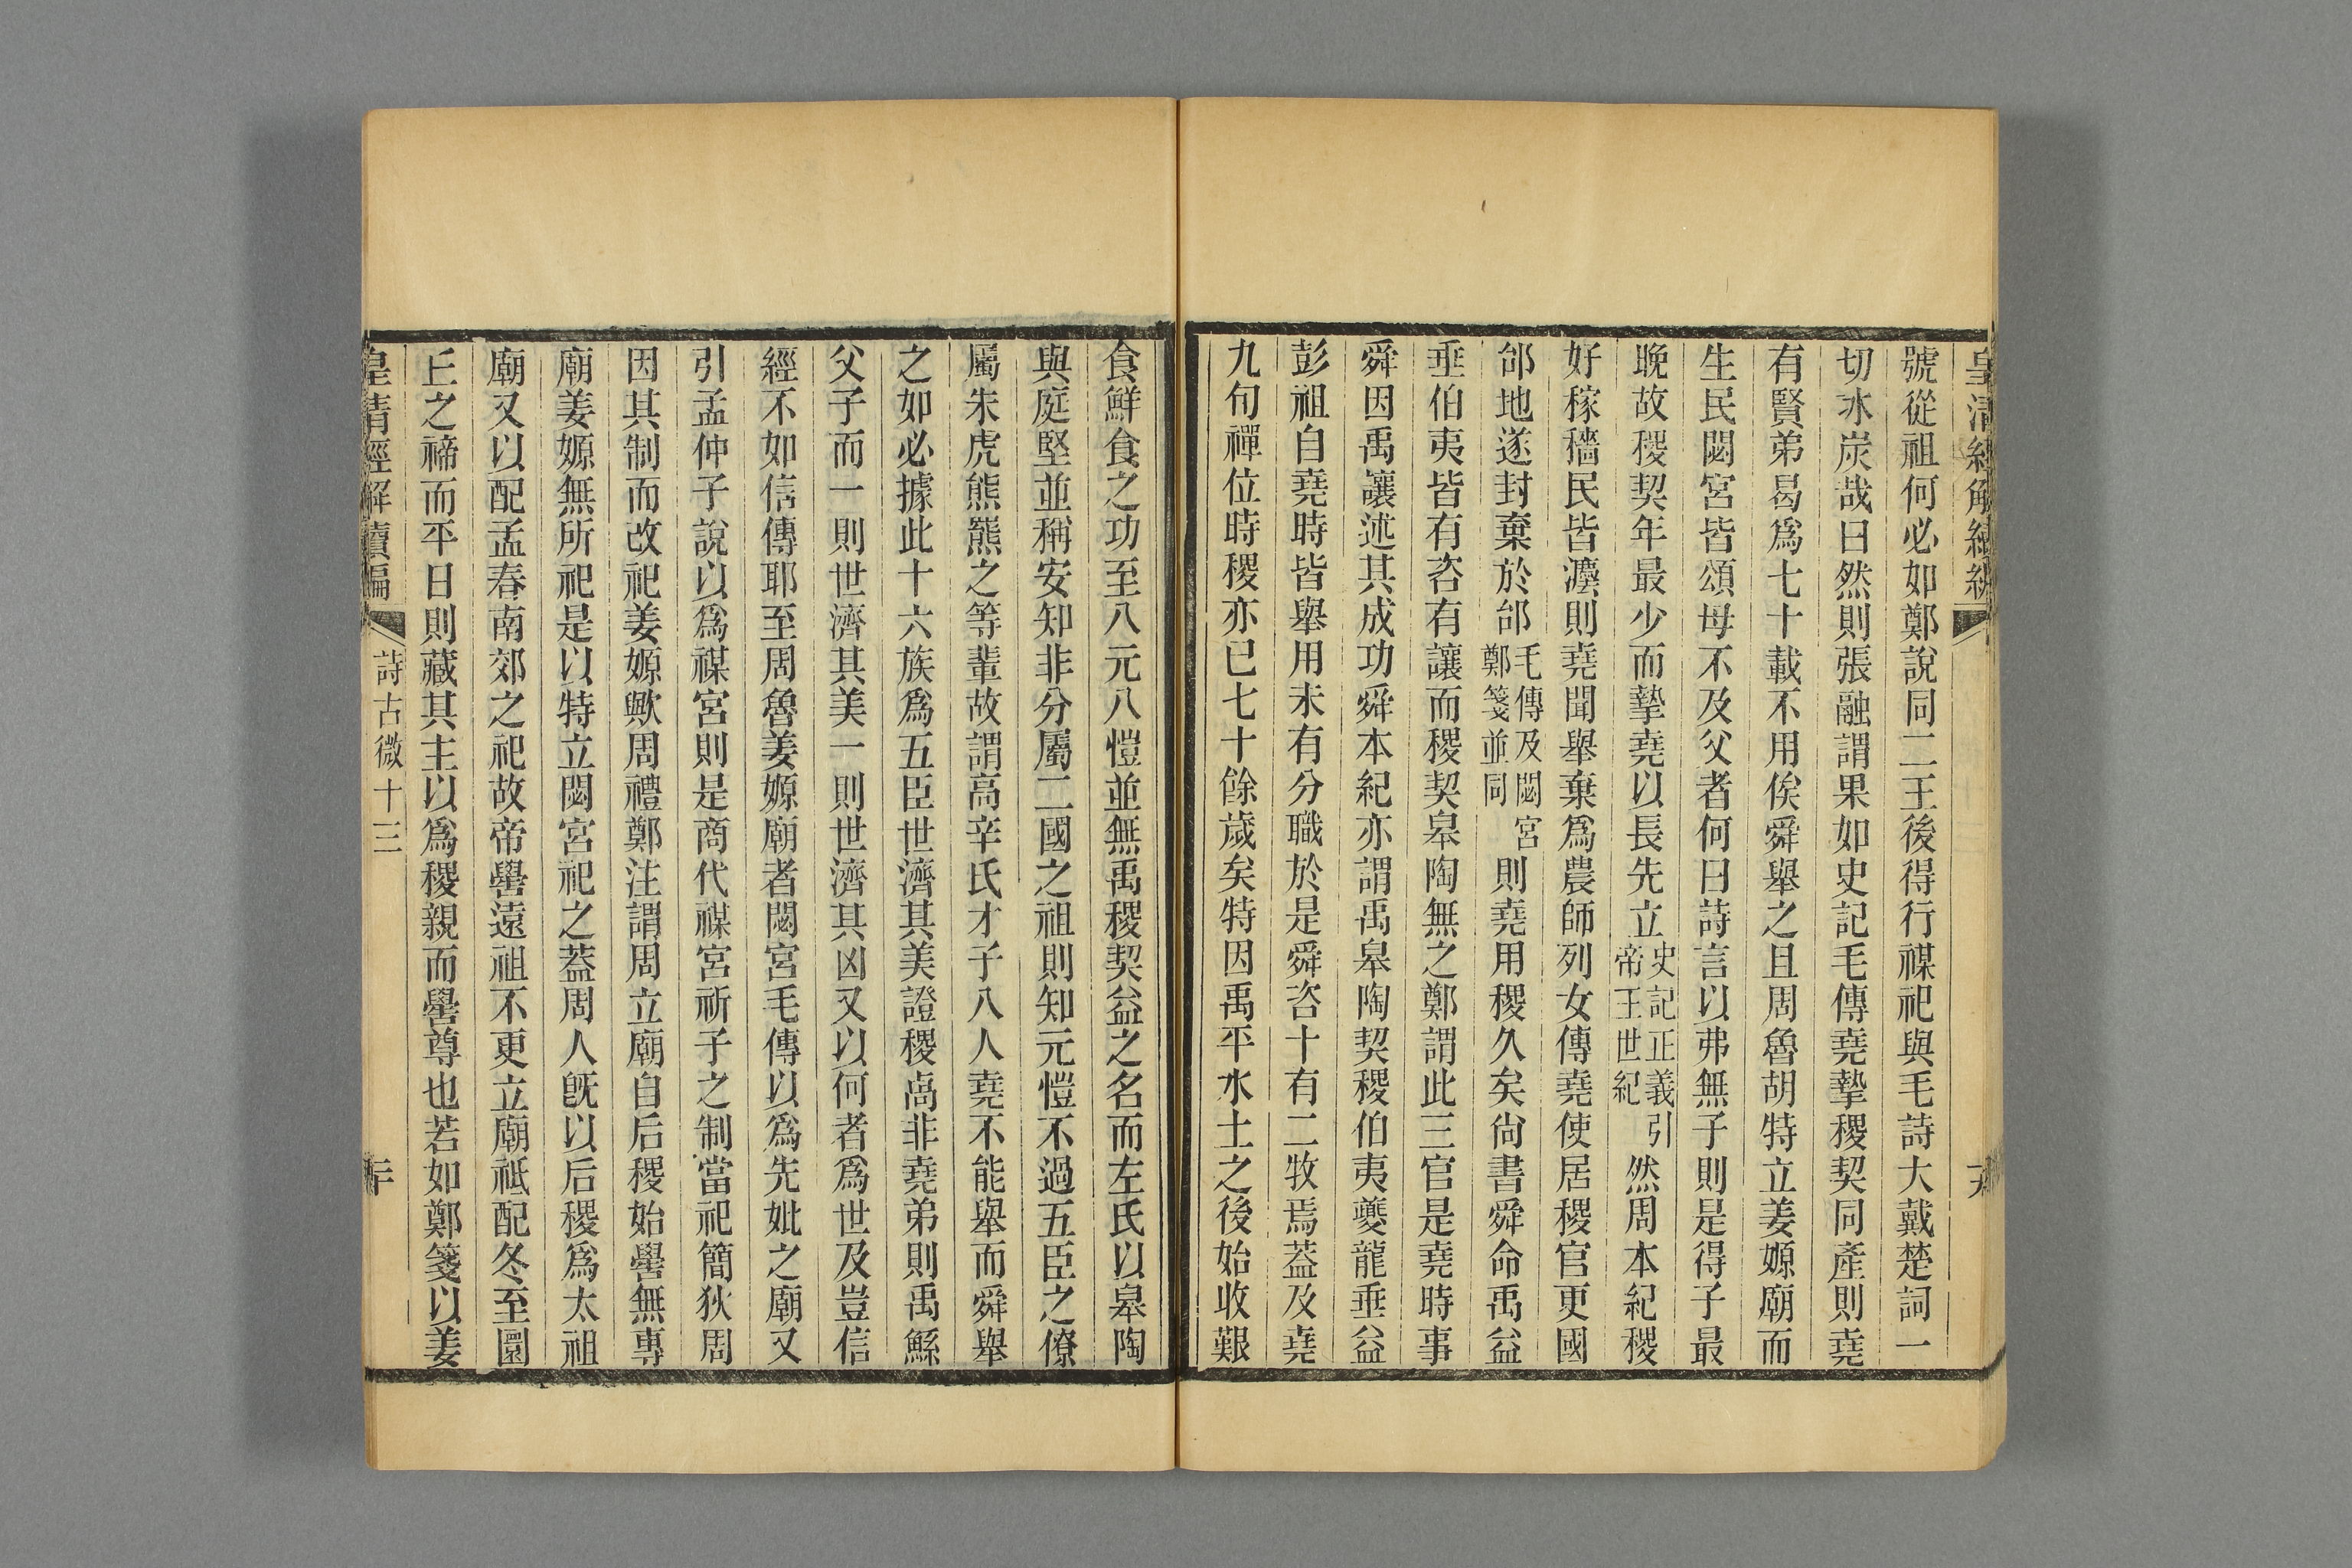 皇清經解續編
十九
號從祖何必如鄭說同二王後得行禖祀與毛詩大戴楚詞一
切冰炭哉曰然則張融謂果如史記毛傳堯摯稷契同產則堯
有賢弟曷爲七十載不用俟舜舉之且周魯胡特立姜嫄廟而
生民閟宮皆頌母不及父者何曰詩言以弗無子則是得子最
晚故稷契年最少而摯堯以長先立史記正義引帝王世紀然周本紀稷
好稼穡民皆灋則堯聞舉棄爲農師列女傳堯使居稷官更國
邰地遂封棄於邰毛傳及閟宮鄭箋並同則堯用稷久矣尙書舜命禹益
垂伯夷皆有咨有讓而稷契皋陶無之鄭謂此三官是堯時事
舜因禹讓述其成功舜本紀亦謂禹皋陶契稷伯夷夔龍垂益
彭祖自堯時皆舉用未有分職於是舜咨十有二牧焉葢及堯
九旬禪位時稷亦已七十餘歲矣特因禹平水土之後始收艱
食鮮食之功至八元八愷並無禹稷契益之名而左氏以皋陶
與庭堅並稱安知非分屬二國之祖則知元愷不過五臣之僚
屬朱虎熊羆之等輩故謂高辛氏才子八人堯不能舉而舜舉
之如必據此十六族爲五臣世濟其美證稷卨非堯弟則禹鯀
父子而一則世濟其美一則世濟其凶又以何者爲世及豈信
經不如信傳耶至周魯姜嫄廟者閟宮毛傳以爲先妣之廟又
引孟仲子說以爲禖宮則是商代禖宮祈子之制當祀簡狄周
因其制而改祀姜嫄歟周禮鄭注謂周立廟自后稷始嚳無專
廟姜嫄無所祀是以特立閟宮祀之葢周人旣以后稷爲太祖
廟又以配孟春南郊之祀故帝嚳遠祖不更立廟祗配冬至圜
丘之禘而平日則藏其主以爲稷親而嚳尊也若如鄭箋以姜
皇清經解續編
詩古微十三
二十